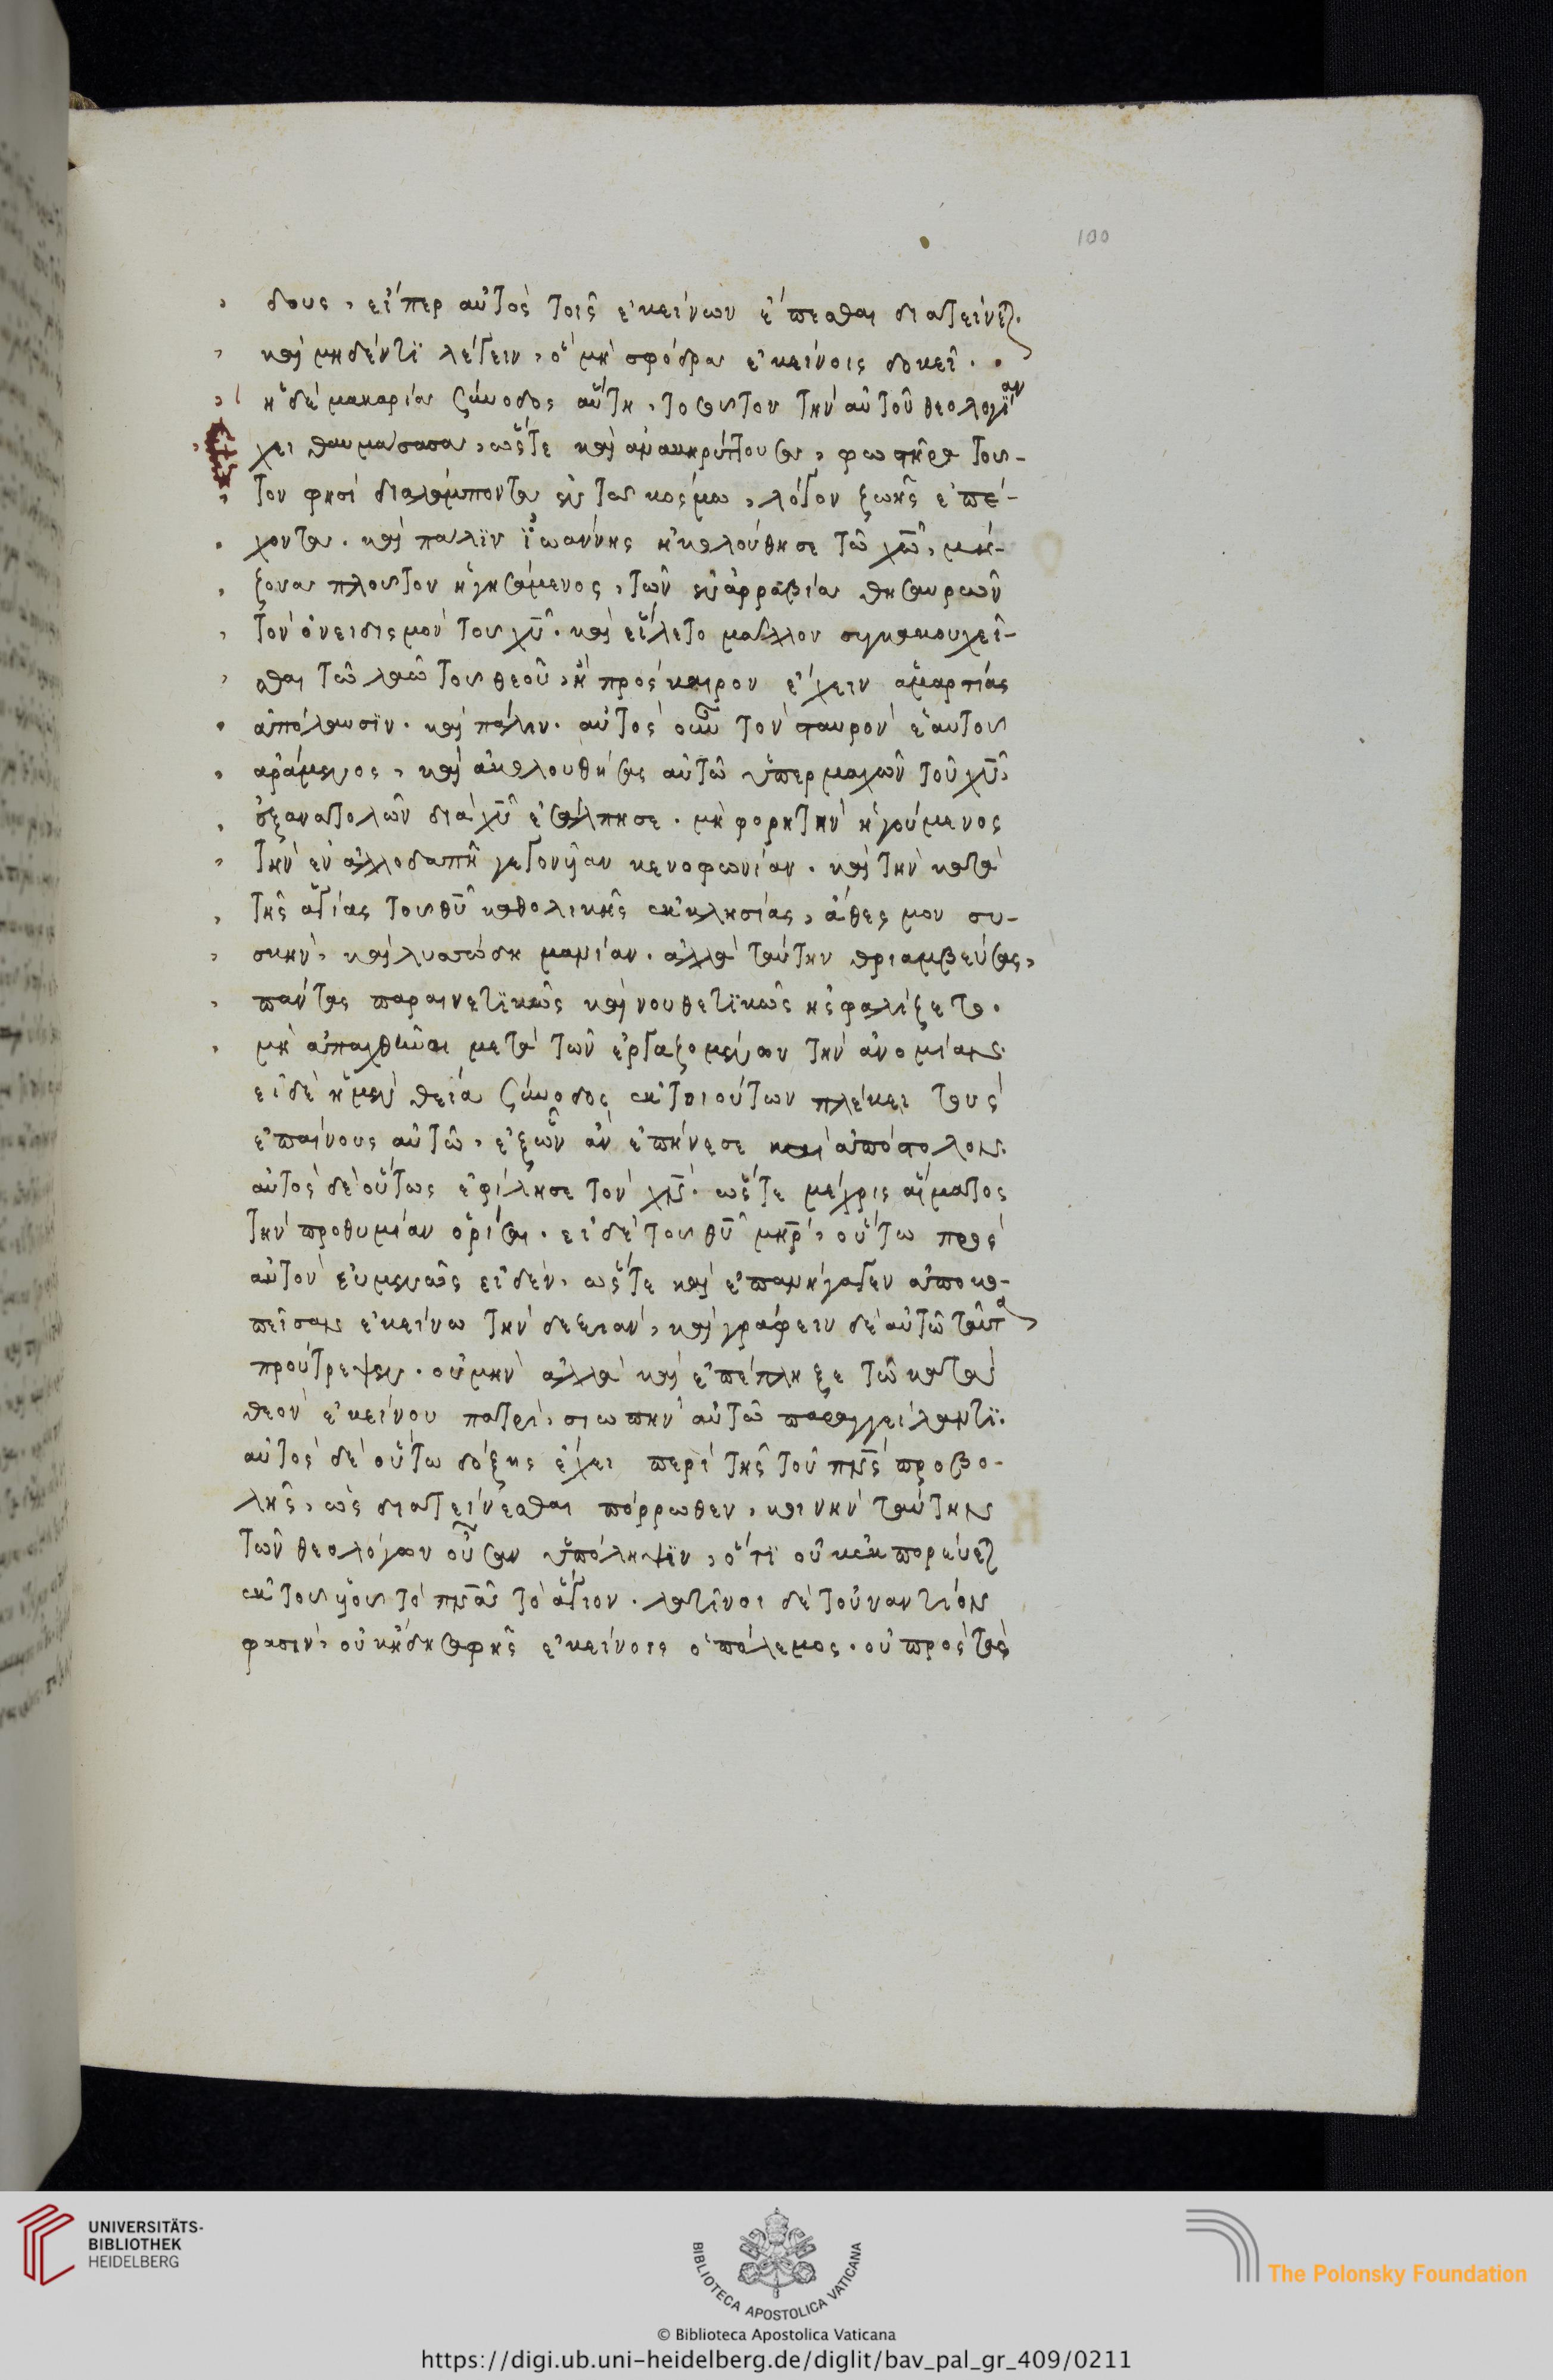 100
δους, εἴπερ αὐτὸς τοῖς ἐκείνων ἕπεσθαι διατείνεται.
καὶ μηδέν τι λέγειν, ὃ μὴ σφόδρα ἐκείνοις δοκεῖ.
ἡ δὲ μακαρία σύνοδος αὕτη, τοσοῦτον τὴν αὐτοῦ θεολογίαν
χει θαυμάσασα, ὥστε καὶ ἀνακηρύττουσα, φωστῆρα τοῦ-
τον φησὶ διαλάμποντα ἐν τῶ κόσμω, λόγον ζωῆς ἐπέ-
χοντα. καὶ πάλιν ἰωάννης ἠκολούθησε τῶ χῶ, μεί-
ζονα πλοῦτον ἡγησάμενος, τῶν ἐν ἀρραβία θησαυρῶν
τὸν ὀνειδισμὸν τοῦ χυ. καὶ εἵλετο μᾶλλον συγκακουχεῖ-
σθαι τῶ λαῶ τοῦ θεοῦ, ἢ πρόσκαιρον ἔχειν ἁμαρτίας
ἀπόλαυσιν. καὶ πάλιν. αὐτὸς οὖν τὸν σταυρὸν ἑαυτοῦ
ἀράμενος, καὶ ἀκολουθήσας αὐτῶ ὑπερμαχῶν τοῦ χυ,
ἐξ ἀνατολῶν διὰ χυ ἐσάλπησε. μὴ φορητὴν ἡγούμενος
τὴν ἐν ἀλλοδαπῆ γεγονυῖαν κενοφωνίαν. καὶ τὴν κατὰ
τῆς ἁγίας τοῦ θυ καθολικῆς ἐκκλησίας, ἄθεσμον συ-
σκὴν, καὶ λυσσώδη μανίαν. ἀλλὰ ταύτην θριαμβεύσας,
πάντας παραινετικῶς καὶ νουθετικῶς ἠσφαλίζετο.
μὴ ἀπαχθῆναι μετὰ τῶν ἐργαζομένων τὴν ἀνομίαν.
εἰ δὲ ἡ μὲν θεία σύνοδος ἐκ τοιούτων πλέκει τοὺς
ἐπαίνους αὐτῶ, ἐξ ὧν ἂν ἐπήνεσε καὶ ἀπόστολον.
αὐτὸς δὲ οὕτως ἐφίλησε τὸν χν. ὥστε μέχρις αἵματος
τὴν προθυμίαν ὁρίσαι. εἰ δὲ τοῦ θυ μηρ, οὕτω πρὸς
αὐτὸν εὐμενῶς εἶδεν, ὥστε καὶ ἐπανήγαγεν ἀποκο-
πεῖσαν ἐκείνω τὴν δεξιὰν, καὶ γράφειν δὲ αὐτῶ ταῦτα
προύτρεψεν. οὐ μὴν ἀλλὰ καὶ ἐπέπληξε τῶ κατὰ
θεὸν ἐκείνου πατρὶ, σιωπὴν αὐτῶ παραγγείλαντι.
αὐτὸς δὲ οὕτω δόξης ἔχει περὶ τῆς τοῦ πνς προβο-
λῆς, ὡς διατείνεσθαι πόρρωθεν, κοινὴν ταύτην
τῶν θεολόγων οὖσαν ὑπόληψιν, ὅτι οὐκ ἐκπορεύεται
ἐκ τοῦ υἱοῦ τὸ πνα τὸ ἅγιον. λατῖνοι δὲ τοὐναντίον
φασὶν, οὐκ ἤδη σαφὴς ἐκείνοις ὁ πόλεμος. οὐ πρὸς τὰς
UNIVERSITÄTS-
BIBLIOTHEK
HEIDELBERG
BIBLIOTECA APOSTOLICA VATICANA
The Polonsky Foundation
© Biblioteca Apostolica Vaticana
https://digi.ub.uni-heidelberg.de/diglit/bav_pal_gr_409/0211